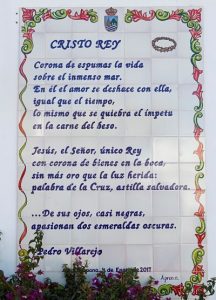 CRISTO REY
Corona de espumas la vida
sobre el inmenso mar.
En él el amor se deshace con ella,
igual que el tiempo,
lo mismo que se quiebra el ímpetu
en la carne del beso.
Jesús, el Señor, único Rey
con corona de bienes en la boca,
sin más oro que la luz herida:
palabra de la Cruz, astilla salvadora.
...De sus ojos, casi negras,
apasionan dos esmeraldas oscuras.
Pedro Villarejo
de Enero de 2017